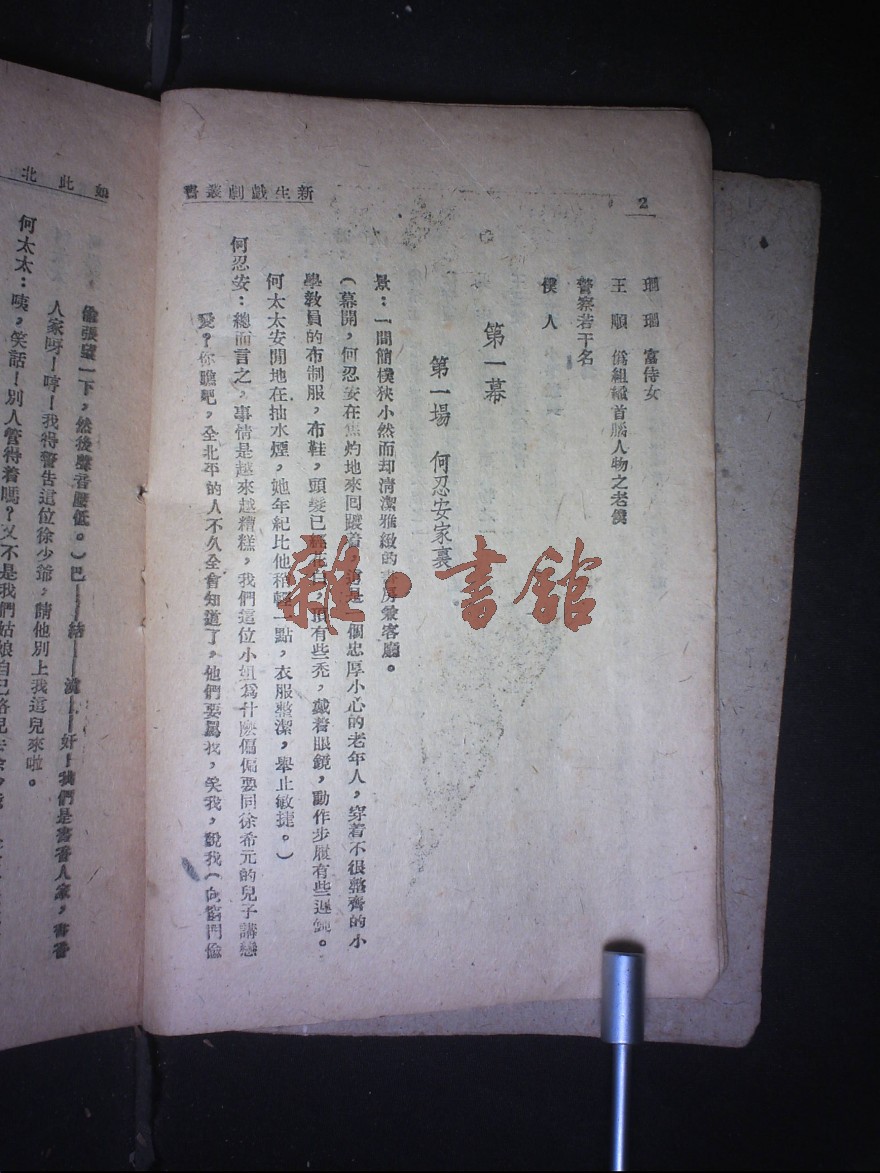 2
新生戲劇叢書
珊瑚 富侍女
王順 僞組織首腦人物之老僕
警察若干名
僕人
第一幕
第一場 何忍安家裏
景：一間簡樸狹小然而却清潔雅緻的書房兼客廳。
（幕開，何忍安在焦灼地來回踱着，這是一個忠厚小心的老年人，穿着不很整齊的小
學教員的布制服，布鞋，頭髮已經花白，頂有些禿，戴着眼鏡，動作步履有些遲鈍。
何太太安閒地在抽水煙，她年紀比他稍輕一點，衣服整潔，舉止敏捷。）
何忍安：總而言之，事情是越來越糟糕，我們這位小姐爲什麽偏偏要同徐希元的兒子講戀
愛？你瞧吧，全北平的人不久全會知道了，他們要罵我，笑我，說我（向窗門偷
如此北
偷張望一下，然後聲音壓低。）巴——結——漢——奸！我們是書香人家，書香
人家呀！哼！我得警告這位徐少爺，請他別上我這兒來啦。
何太太：咦，笑話！別人管得着嗎？又不是我們姑娘自己
雜·書館